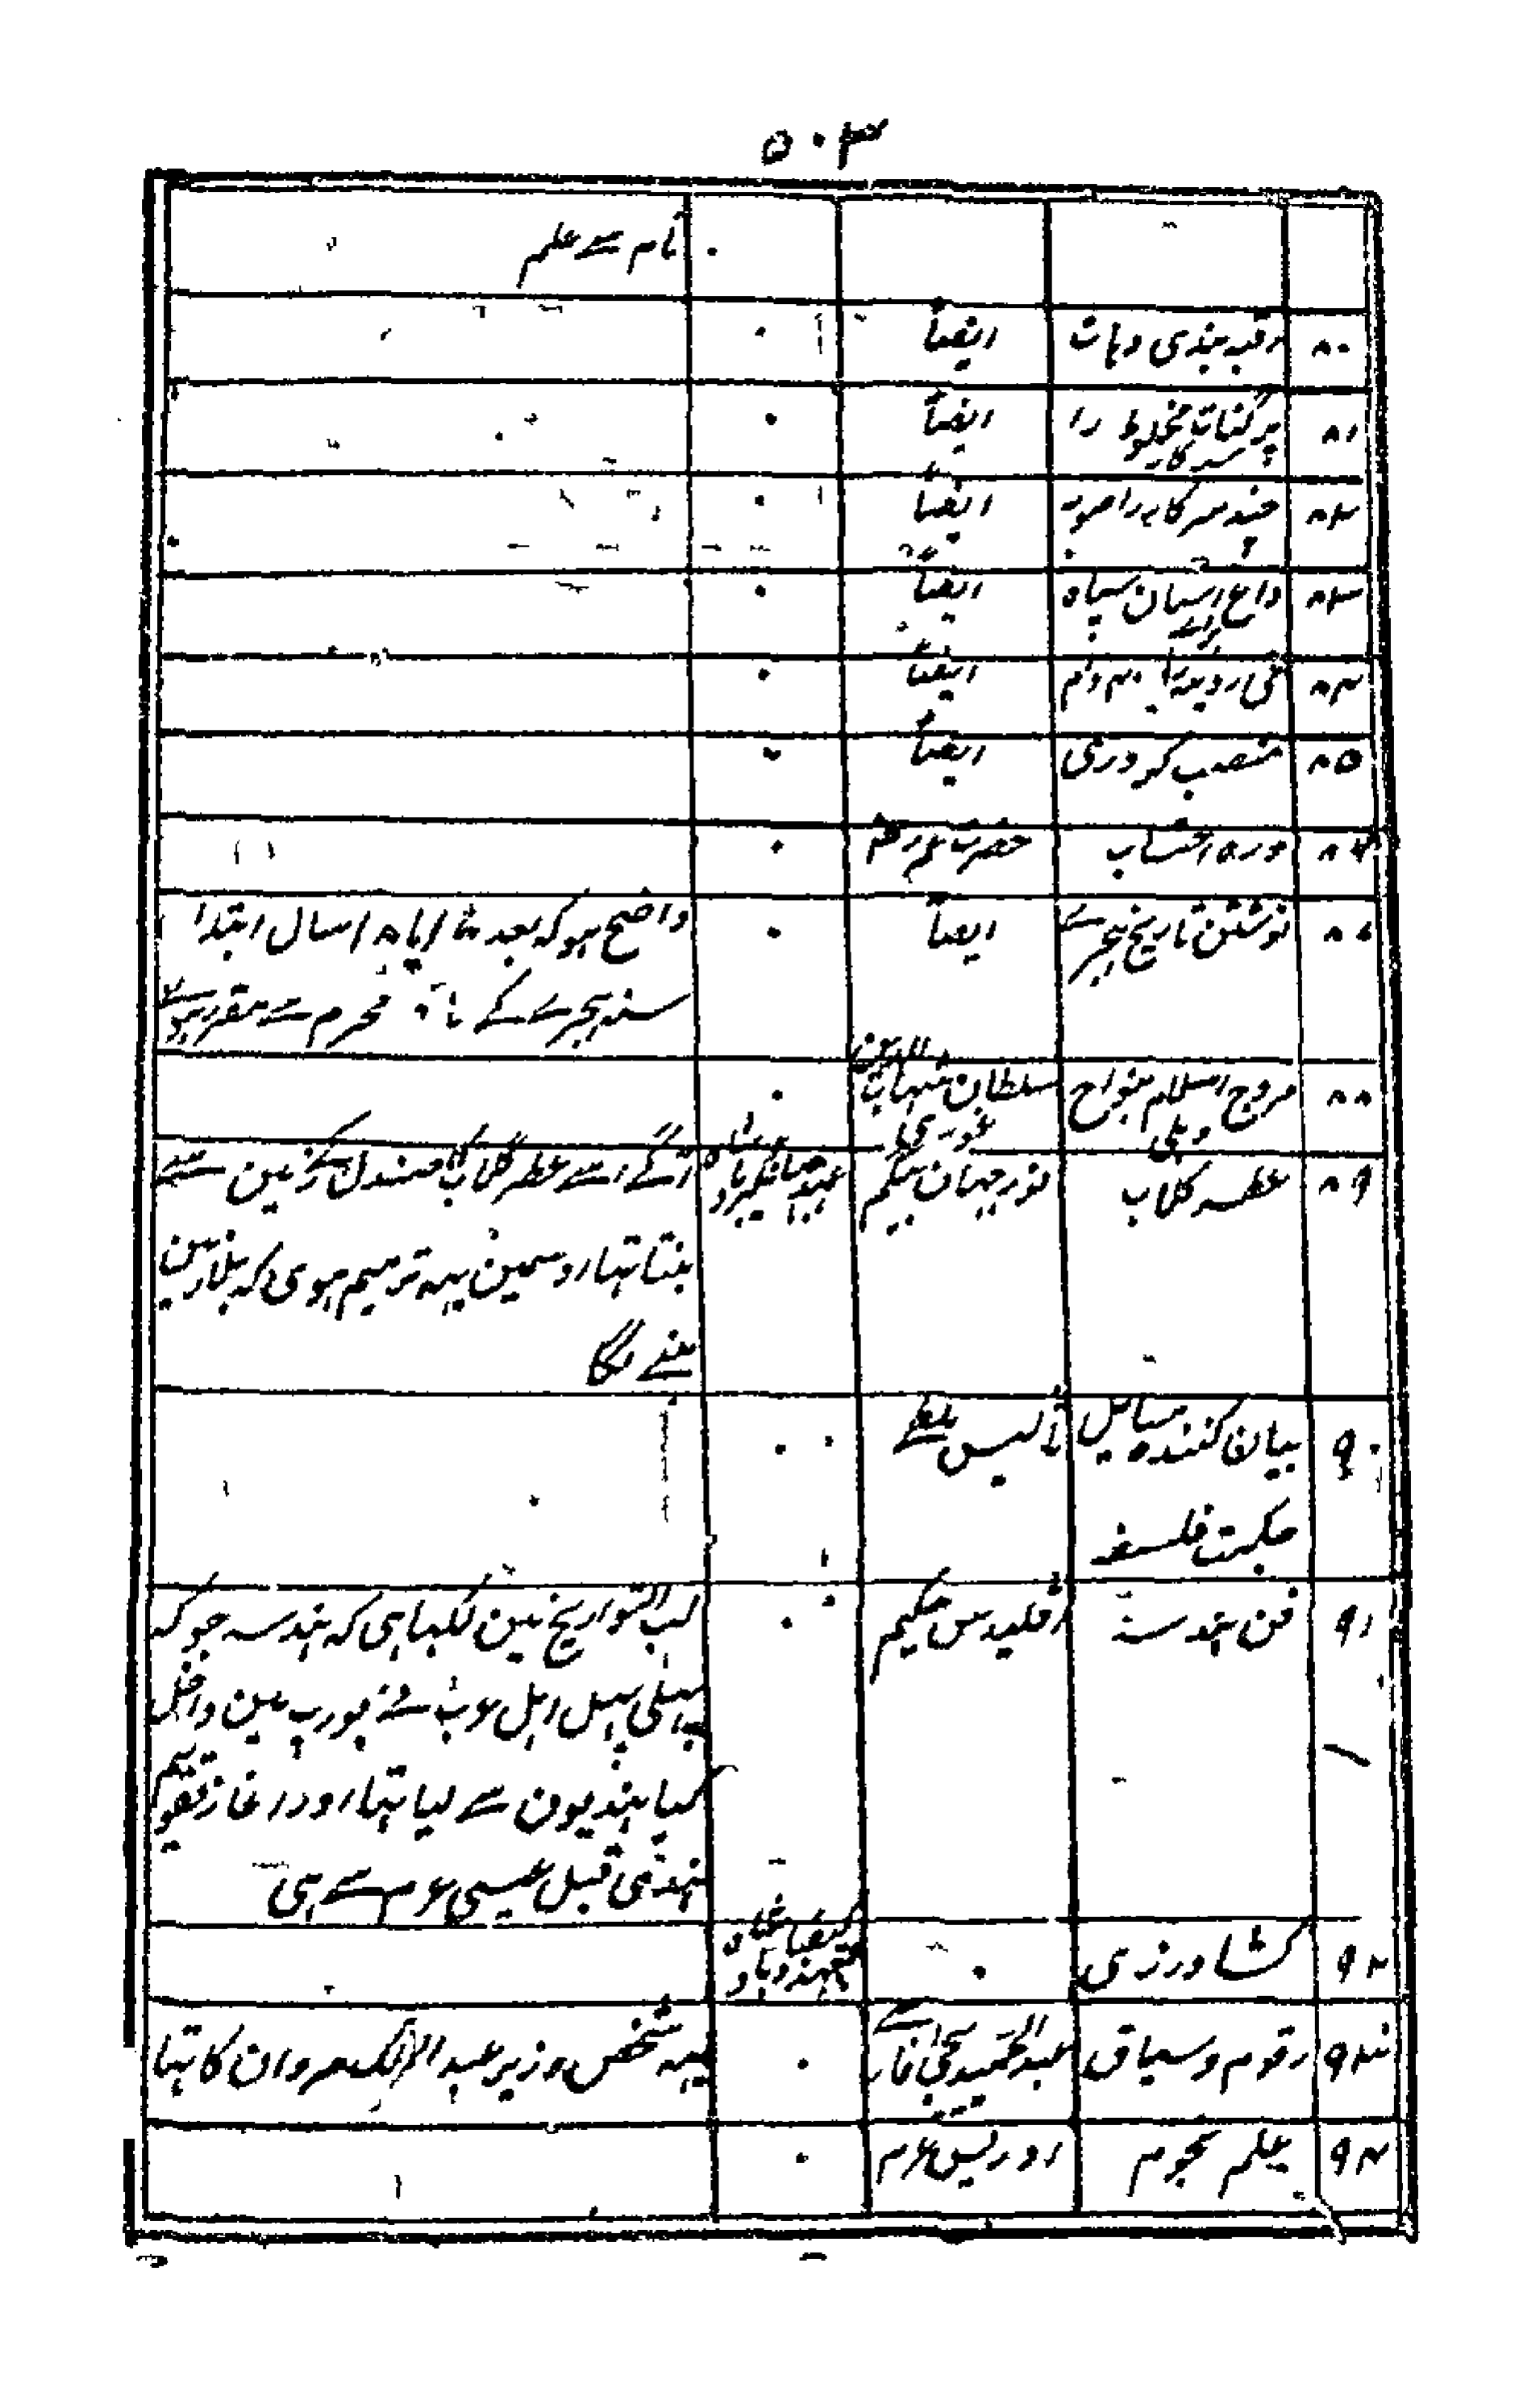 ۵۰۳
نام سے علم
۸۰ رقبہ بندی دہات ایضاً ۰
۸۱ پرگنات مخلوط را سرکار ایضاً ۰
۸۲ چند سرکار را صوبہ ایضاً ۰
۸۳ داغ اسپان سپاہ ایضاً ۰
۸۴ فی روپیہ ۴۰ دام ایضاً ۰
۸۵ منصب کروری ایضاً ۰
۸۶ درہ احتساب حضرت عمر رضہ ۰
۸۷ نوشتن تاریخ ہجرے ایضاً ۰ واضح ہو کہ بعد ۱۷ یا ۱۸ سال ابتدا
سنہ ہجرے کے ماہ محرم سے مقرر ہوئے
۸۸ مروج اسلام بنواح دہلی سلطان شہاب الدین غوری ۰
۸۹ عطر گلاب نورجہان بیگم عہد جہانگیر بادشاہ آگے اسے عطر گلاب کا صندل کے زمین سے
بنتا تہا اوسمین یہہ ترمیم ہوی کہ بلا زمین
بننے لگا
۹۰ بیان کنندہ مسایل تالیس ملطے ۰
حکمت فلسفہ
۹۱ فن ہندسہ اقلیدس حکیم ۰ لب التواریخ مین لکہا ہی کہ ہندسہ جو کہ
پہلی پہل اہل عرب نے یورپ مین داخل
کیا ہندیون سے لیا تہا اور اغاز تقویم
ہندی قبل عیسی عم سے ہی
۹۲ کشاورزی ۰
۹۳ رقوم و سیاق عبدالحمید یحی ۰ یہہ شخص وزیر عبد الملک مروان کا تہا
۹۴ علم نجوم ادریس عم ۰